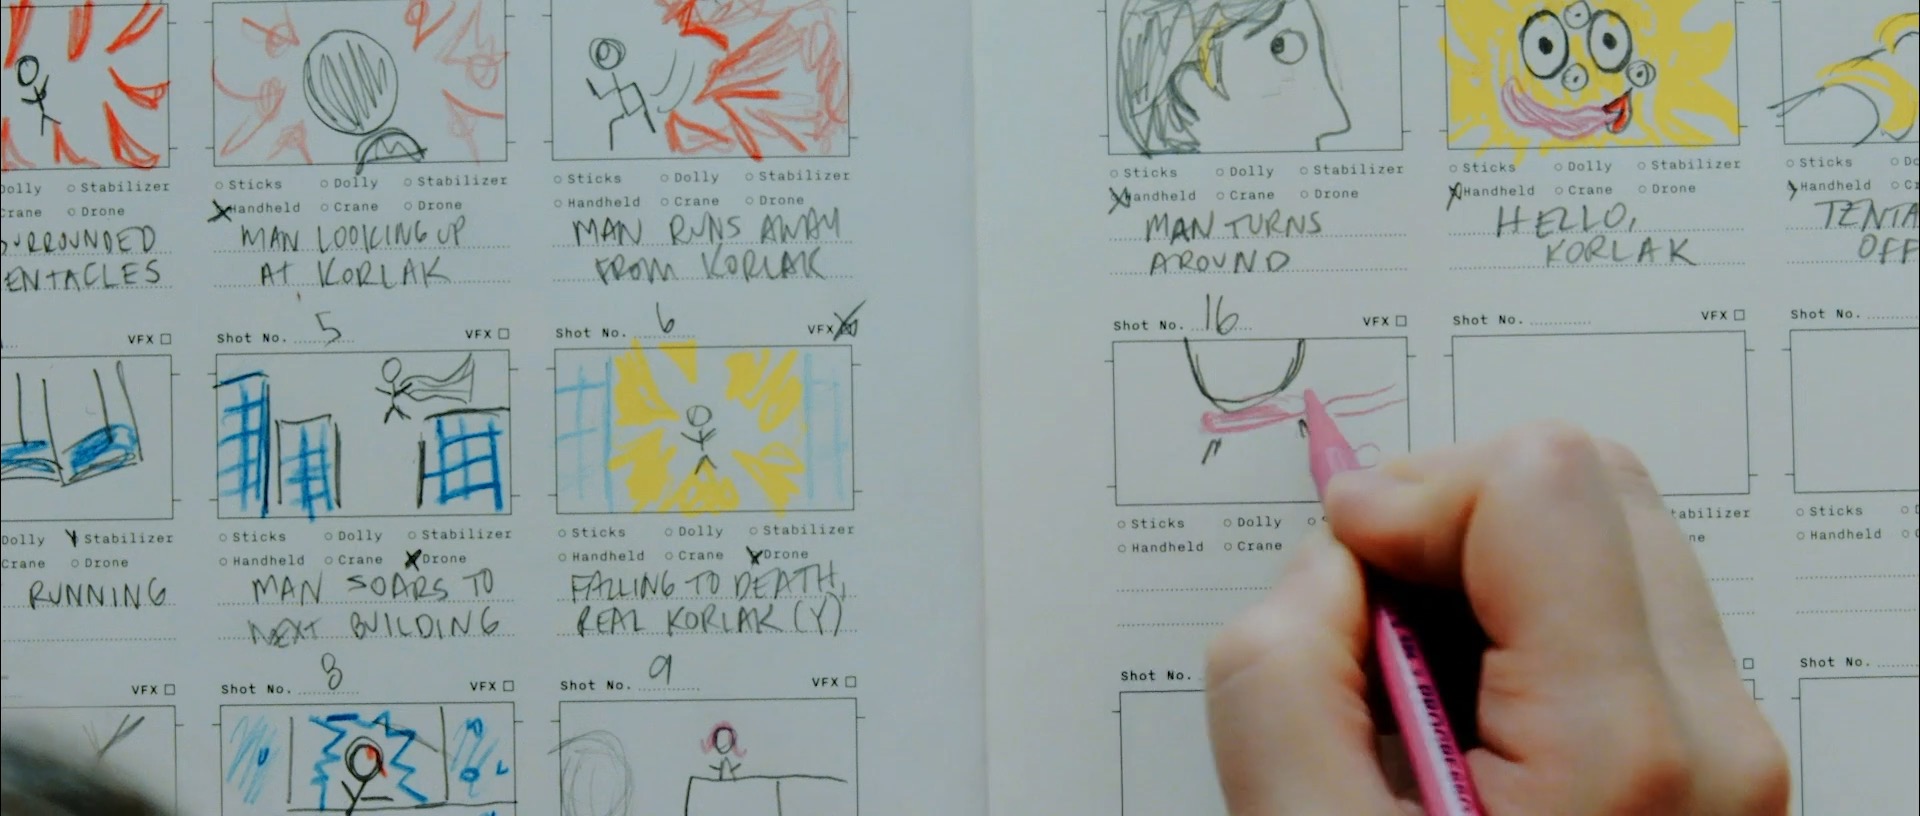 Dolly ○ Stabilizer
Crane ○ Drone
SURROUNDED
TENTACLES
○ Sticks ○ Dolly ○ Stabilizer
Handheld ○ Crane ○ Drone
MAN LOOKING UP
AT KORLAK
○ Sticks ○ Dolly ○ Stabilizer
○ Handheld ○ Crane ○ Drone
MAN RUNS AWAY
FROM KORLAK
VFX
Dolly Stabilizer
Crane ○ Drone
RUNNING
Shot No. 5 VFX
○ Sticks ○ Dolly ○ Stabilizer
○ Handheld ○ Crane Drone
MAN SOARS TO
NEXT BUILDING
Shot No. 6 VFX
○ Sticks ○ Dolly ○ Stabilizer
○ Handheld ○ Crane Drone
FALLING TO DEATH,
REAL KORLAK (Y)
VFX
Shot No. 8 VFX
Shot No. 9 VFX
○ Sticks ○ Dolly ○ Stabilizer
Handheld ○ Crane ○ Drone
MAN TURNS
AROUND
○ Sticks ○ Dolly ○ Stabilizer
Handheld ○ Crane ○ Drone
HELLO,
KORLAK
○ Sticks
Handheld
TENTA
OFF
Shot No. 16 VFX
○ Sticks ○ Dolly
○ Handheld ○ Crane
Shot No. VFX
Shot No.
○ Sticks
○ Handheld
Shot No.
Shot No.